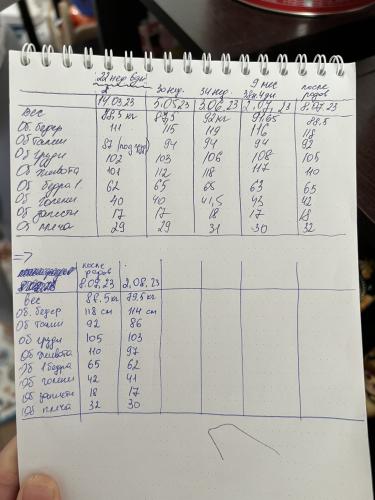 22 нед 30 нед. 34 нед. 9 мес после
38н4дн родов
14.03.23 5.05.23 3.06.23 2.07.23 8.07.23
Вес 88,5 кг 92 кг 88.5
Об. бедер 111 115 119 116 118
Об талии 94 94 94 92
Об груди 102 103 106 108 105
Об живота 101 112 118 117
Об бедра 1 62 65 65 63 65
Об голени 40 40 41,5 43 42
Об запястья 17 17 18 17 18
Об плеча 29 29 31 30 32
=>
после
родов
2.08.23
Вес 88.5 кг
Об. бедер 118 см 114 см
Об талии 92 86
Об груди 105 103
Об живота 110 97
Об 1 бедра 65 62
Об голени 42 41
Об запястья 18 17
Об плеча 32 30